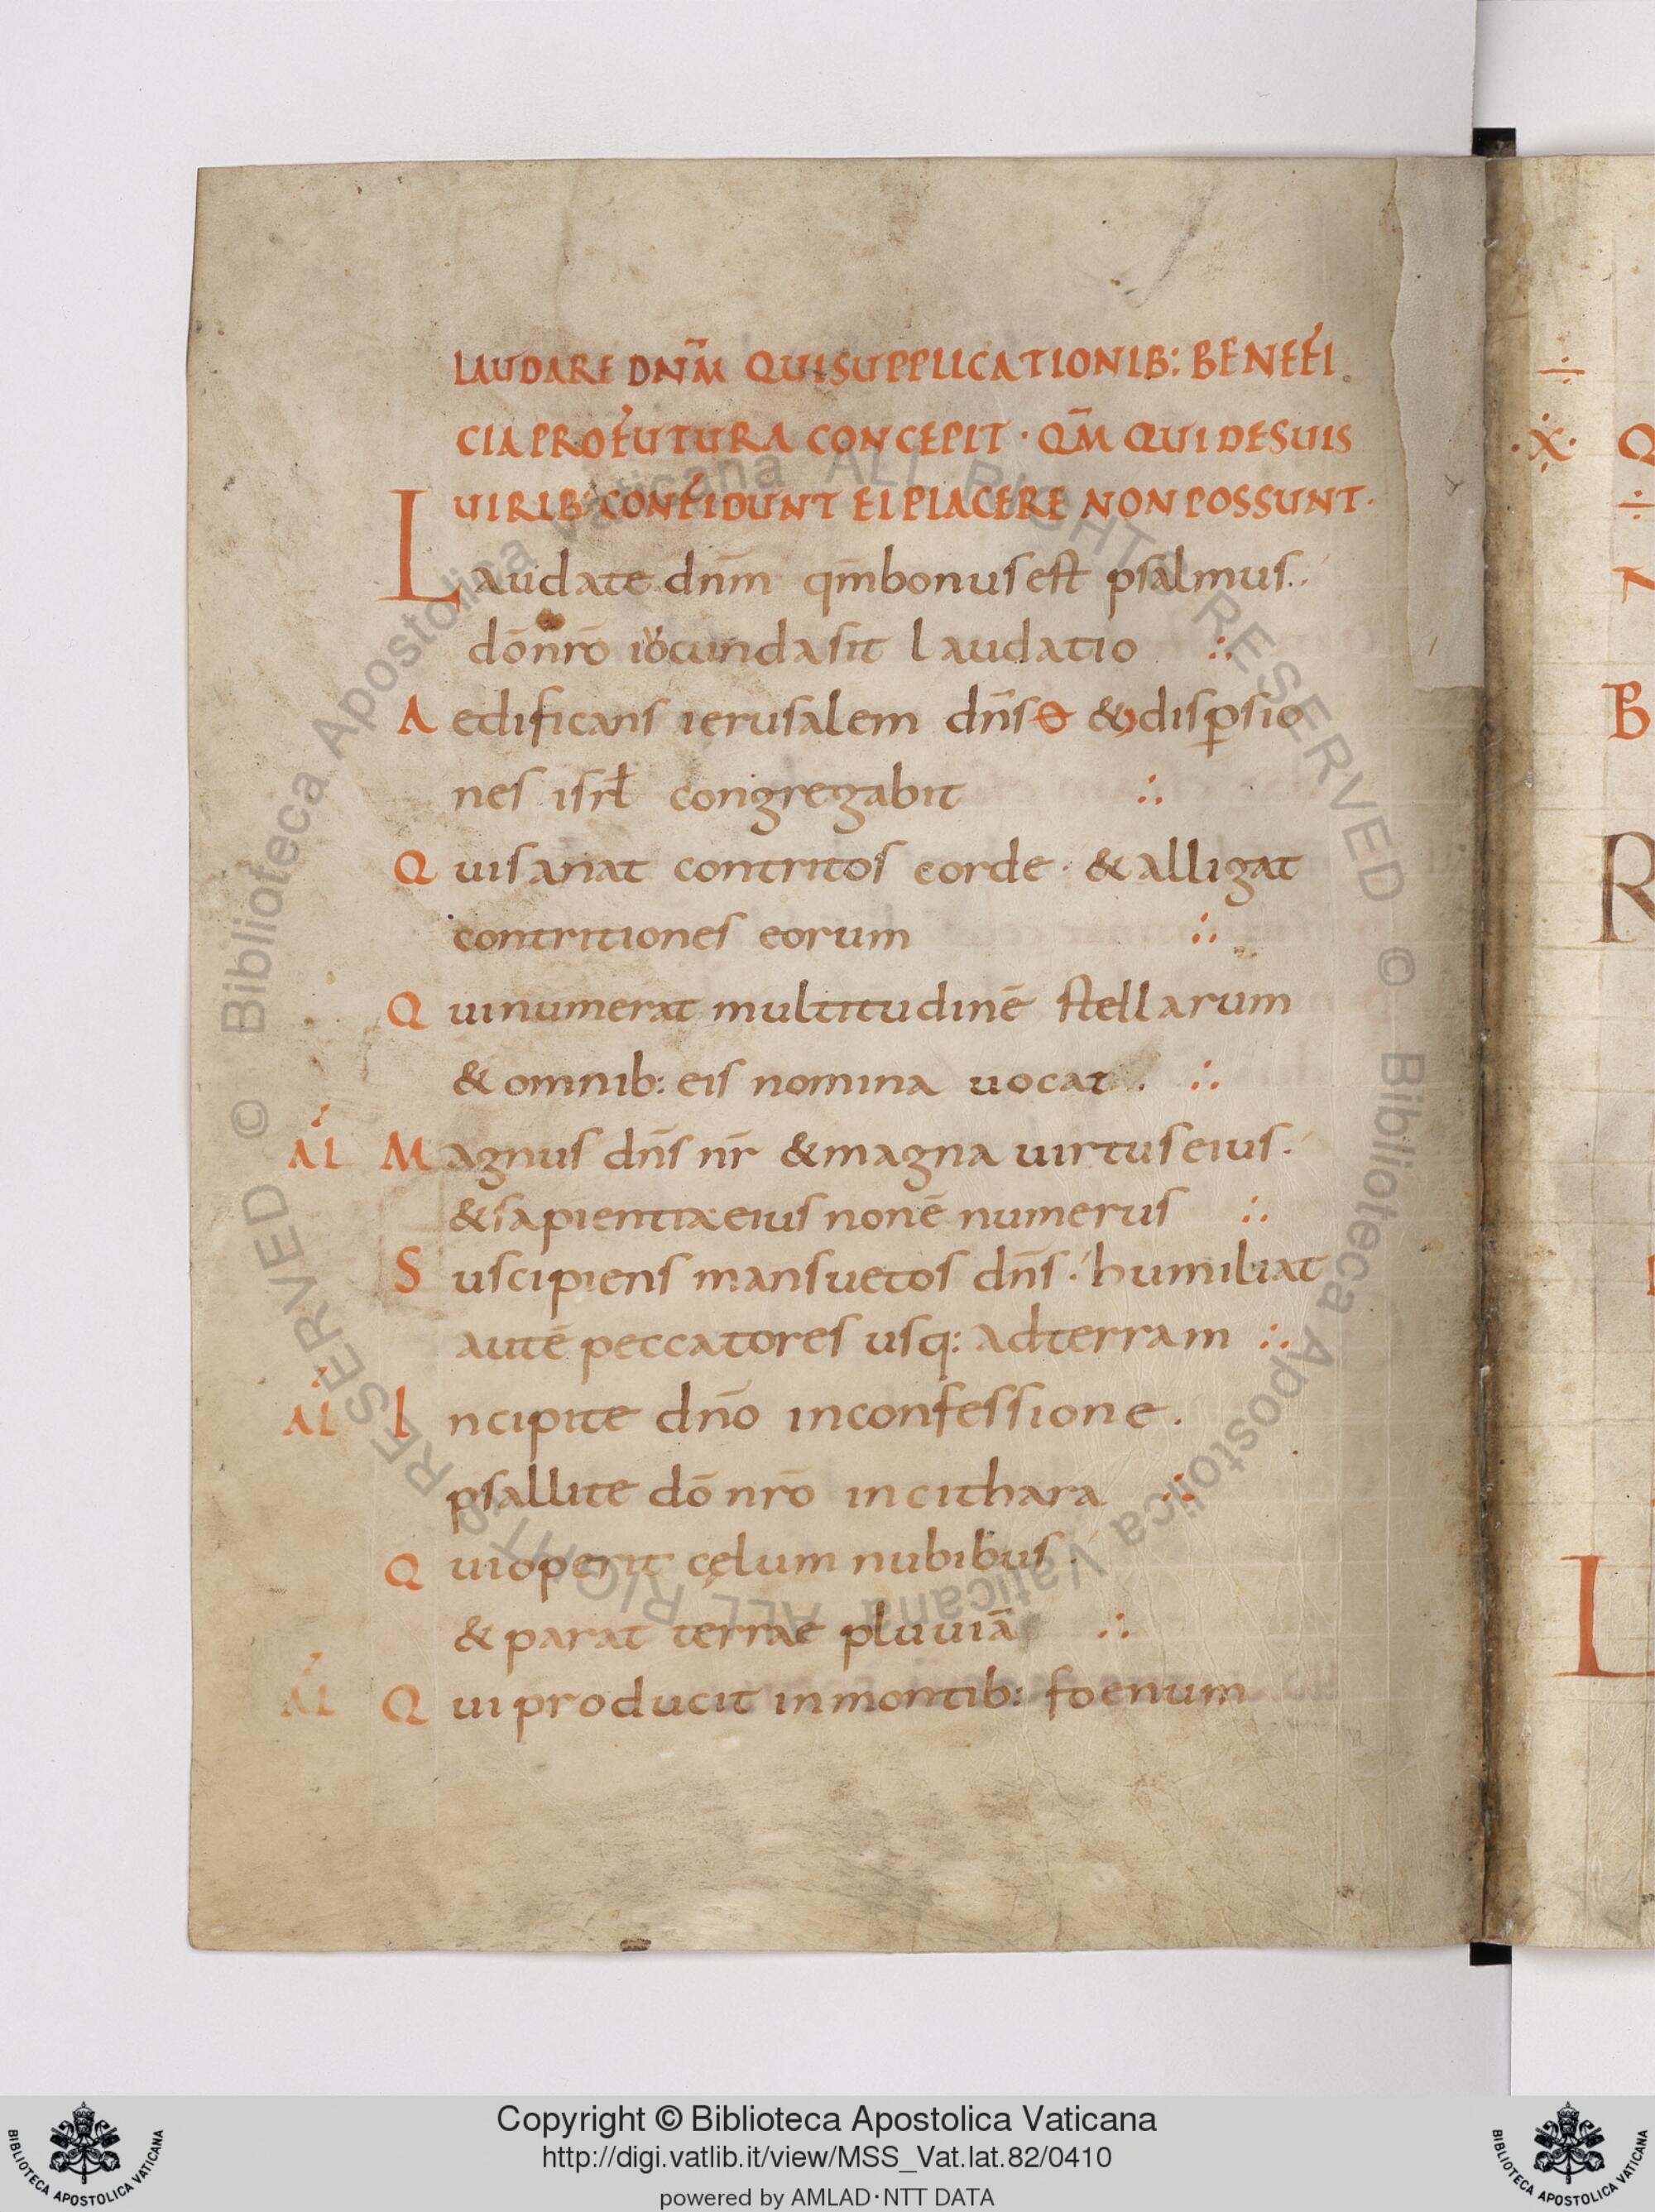 LAUDARE DNM̄ QUISUPPLICATIONIB: BENEFI
CIAPROFUTURA CONCEPIT · QM̄ QUIDESUIS
UIRIB: CONFIDUNT EIPLACERE NONPOSSUNT·
Laudate dnm̄ qm̄bonusest psalmus.
dōnrō iocundasit laudatio ∴
Aedificans ierusalem dn̄s & dispsio
nes isrł congregabit ∴
Quisanat contritos corde · & alligat
contritiones eorum ∴
Quinumerat multitudinē stellarum
& omnib: eis nomina uocat . ∴
AL Magnus dn̄s nr̄ &magna uirtuseius.
&sapientiaeeius nonē numerus ∴
Suscipiens mansuetos dn̄s · humiliat
autē peccatores usq: adterram ∴
AL Incipite dn̄o inconfessione.
psallite dō nrō incithara ∴
Quioperit cęlum nubibus .
& parat terrae pluuiā ∴
AL Qui producit inmontib: foenum
÷
·X· Q
÷
B
R
L
© Biblioteca Apostolica Vaticana ALL RIGHTS RESERVED © Biblioteca Apostolica Vaticana ALL RIGHTS RESERVED
Copyright © Biblioteca Apostolica Vaticana
http://digi.vatlib.it/view/MSS_Vat.lat.82/0410
powered by AMLAD·NTT DATA
BIBLIOTECA APOSTOLICA VATICANA
BIBLIOTECA APOSTOLICA VATICANA